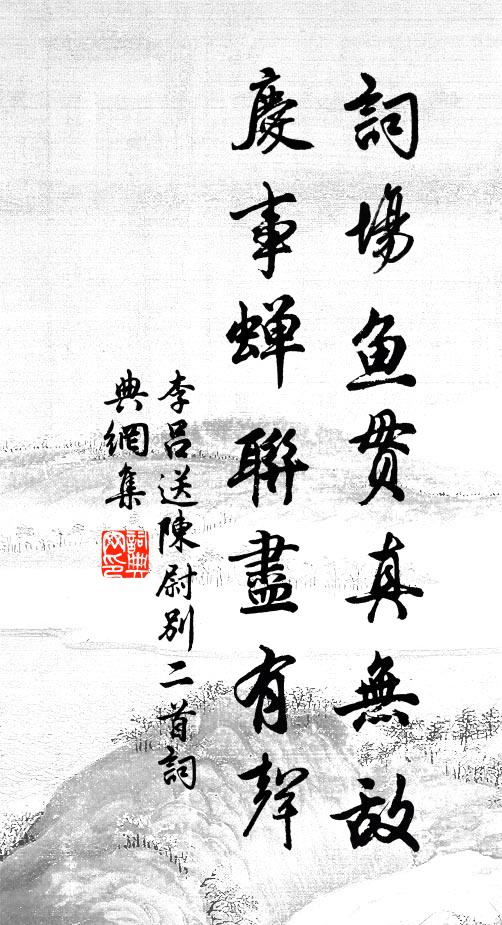 詞場魚貫真無敵
慶事蝉聯盡有聲
李呂送陳尉別二首詞
典網集
詞典
网印